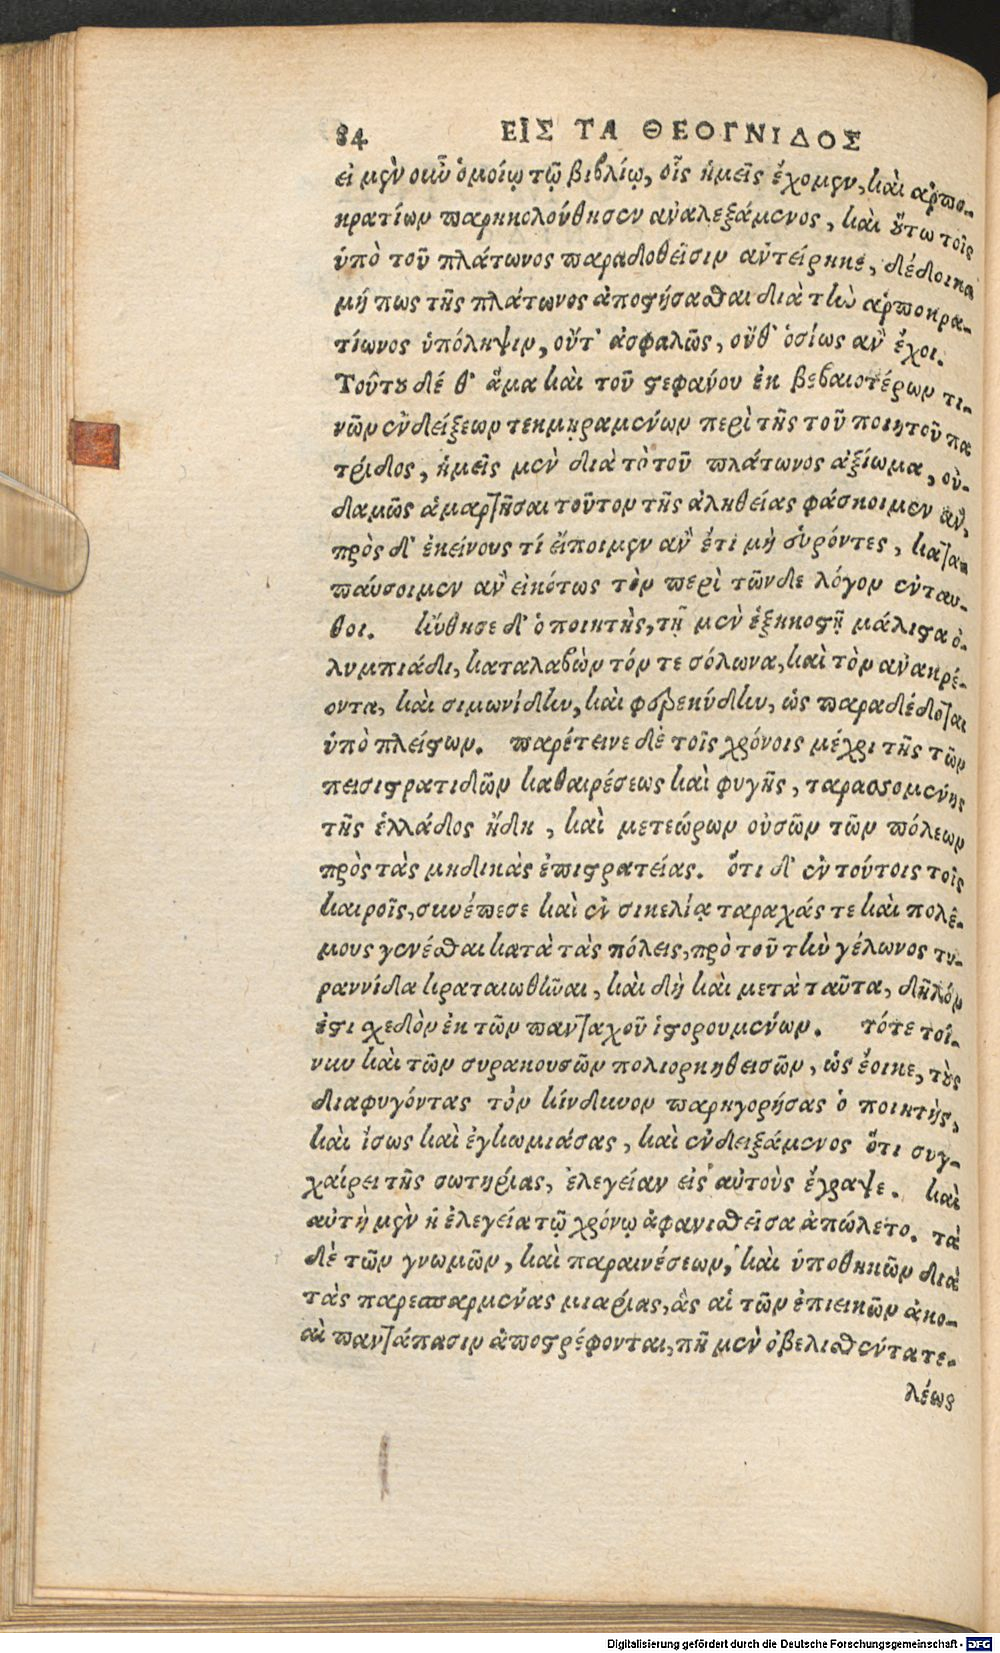 84 ΕἸΣ ΤΑ ΘΕΟΓΝΙΔΟΣ
εἰ μὲν οὖν ὁμοίῳ τῷ βιβλίῳ, οἷς ἡμεῖς ἔχομεν, καὶ ἁρπο-
κρατίων παρηκολούθησεν ἀναλεξάμενος, καὶ οὕτω τοῖς
ὑπὸ τοῦ πλάτωνος παραδοθεῖσιν ἀντείρηκε, δέδοικα
μή πως τῆς πλάτωνος ἀποστήσασθαι διὰ τὴν ἁρποκρα-
τίωνος ὑπόληψιν, οὔτ' ἀσφαλῶς, οὔθ' ὁσίως ἂν ἔχοι.
Τούτου δέ θ' ἅμα καὶ τοῦ στεφάνου ἐκ βεβαιοτέρων τι-
νῶν ἐνδείξεων τεκμηραμένων περὶ τῆς τοῦ ποιητοῦ πα
τρίδος, ἡμεῖς μὲν διὰ τὸ τοῦ πλάτωνος ἀξίωμα, οὐ-
δαμῶς ἁμαρτῆσαι τοῦτον τῆς ἀληθείας φάσκοιμεν ἂν,
πρὸς δ' ἐκείνους τί εἴποιμεν ἂν ἔτι μὴ εὑρόντες, κατα
παύσοιμεν ἂν εἰκότως τὸν περὶ τῶνδε λόγον ἐνταυ-
θοι. ἤνθησε δ' ὁ ποιητὴς, τῇ μὲν ἑξηκοστῇ μάλιστα ὀ-
λυμπιάδι, καταλαβὼν τόν τε σόλωνα, καὶ τὸν ἀνακρέ-
οντα, καὶ σιμωνίδην, καὶ φερεκύδην, ὡς παραδέδοται
ὑπὸ πλείστων. παρέτεινε δὲ τοῖς χρόνοις μέχρι τῆς τῶν
πεισιστρατιδῶν καθαιρέσεως καὶ φυγῆς, ταρασσομένης
τῆς ἑλλάδος ἤδη, καὶ μετεώρων οὐσῶν τῶν πόλεων
πρὸς τὰς μηδικὰς ἐπιστρατείας. ὅτι δ' ἐν τούτοις τοῖς
καιροῖς, συνέπεσε καὶ ἐν σικελίᾳ ταραχάς τε καὶ πολέ-
μους γενέσθαι κατὰ τὰς πόλεις, πρὸ τοῦ τὴν γέλωνος τυ-
ραννίδα κραταιωθῆναι, καὶ δὴ καὶ μετὰ ταῦτα, δῆλόν
ἐστι σχεδὸν ἐκ τῶν πανταχοῦ ἱστορουμένων. τότε τοί-
νυν καὶ τῶν συρακουσῶν πολιορκηθεισῶν, ὡς ἔοικε, τοὺς
διαφυγόντας τὸν κίνδυνον παρηγορήσας ὁ ποιητὴς,
καὶ ἴσως καὶ ἐγκωμιάσας, καὶ ἐνδειξάμενος ὅτι συγ-
χαίρει τῆς σωτηρίας, ἐλεγείαν εἰς αὐτοὺς ἔγραψε. καὶ
αὐτὴ μὲν ἡ ἐλεγεία τῷ χρόνῳ ἀφανισθεῖσα ἀπώλετο. τὰ
δὲ τῶν γνωμῶν, καὶ παραινέσεων, καὶ ὑποθηκῶν διὰ
τὰς παρεσπαρμένας μιαρίας, ἃς αἱ τῶν ἐπιεικῶν ἀκο-
αὶ παντάπασιν ἀποστρέφονται, πῆ μὲν ὀβελισθέντα τε-
λέως
Digitalisierung gefördert durch die Deutsche Forschungsgemeinschaft - DFG